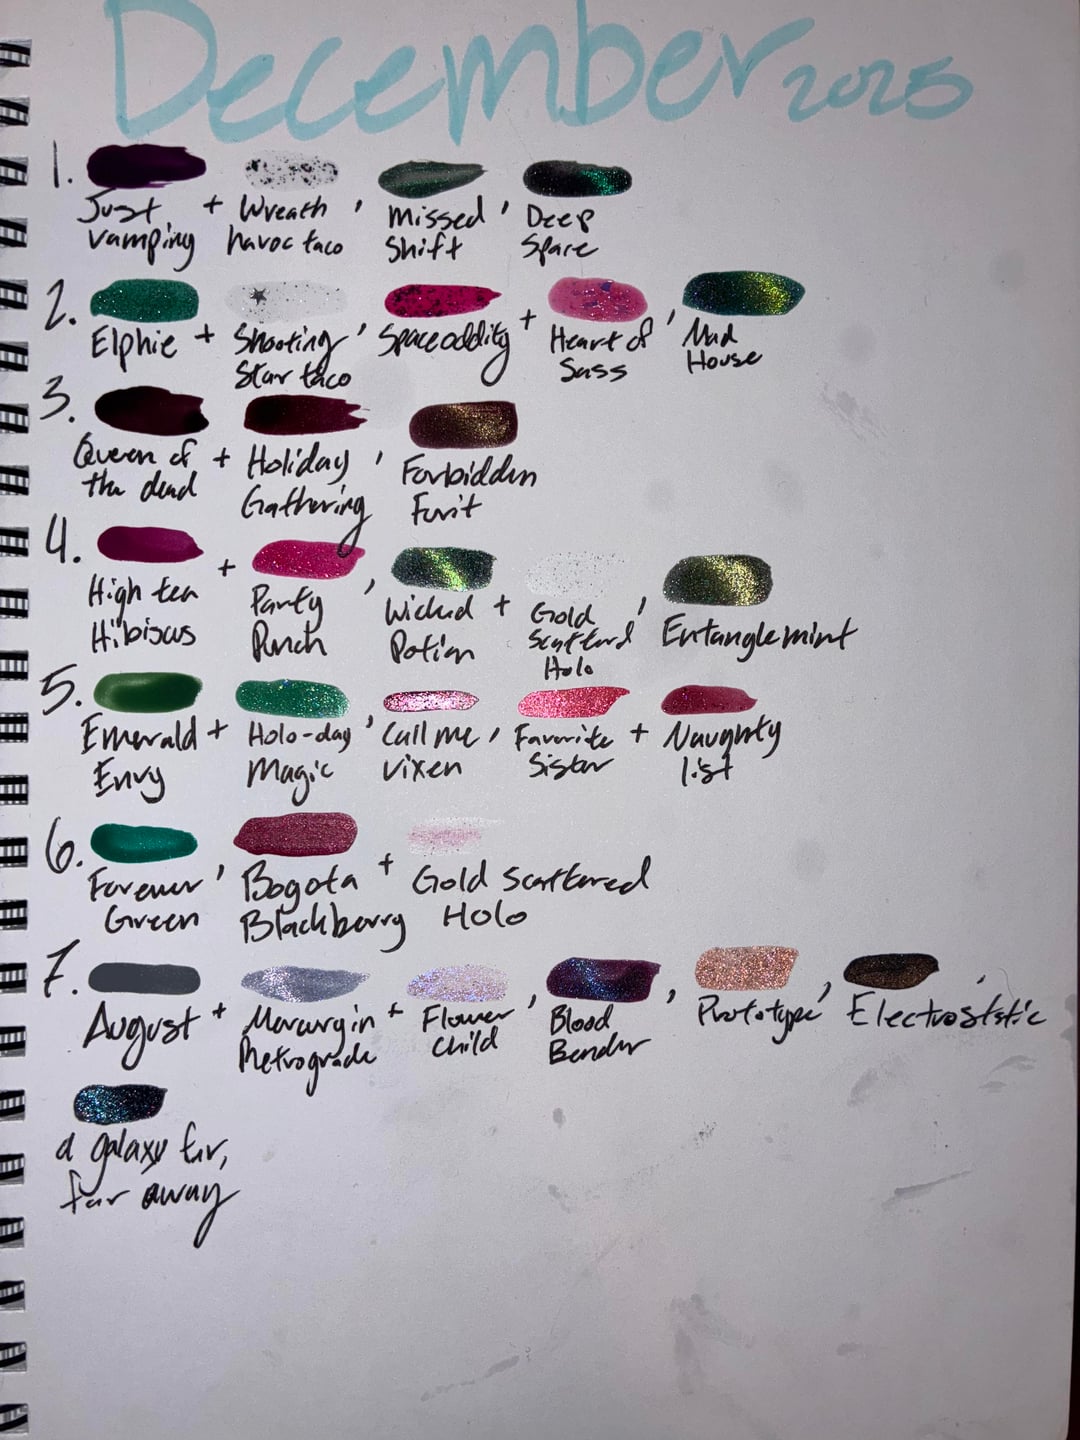 December 2025
1. Just + Wreath , Missed , Deep
Vamping havoc taco Shift Space
2. Elphie + Shooting , Space oddity + Heart of , Mad
Star taco Sass House
3. Queen of + Holiday , Forbidden
the dead Gathering Furit
4. High tea + Party , Wicked + Gold , Entanglemint
Hibiscus Punch Potion Scattered
Holo
5. Emerald + Holo-day , Call me , Favorite + Naughty
Envy Magic Vixen Sister list
6. Forever , Bogota + Gold Scattered
Green Blackberry Holo
7. August + Mercurgin + Flower , Blood , Prototype , Electroststic ,
Retrograde Child Bender
a galaxy far,
far away